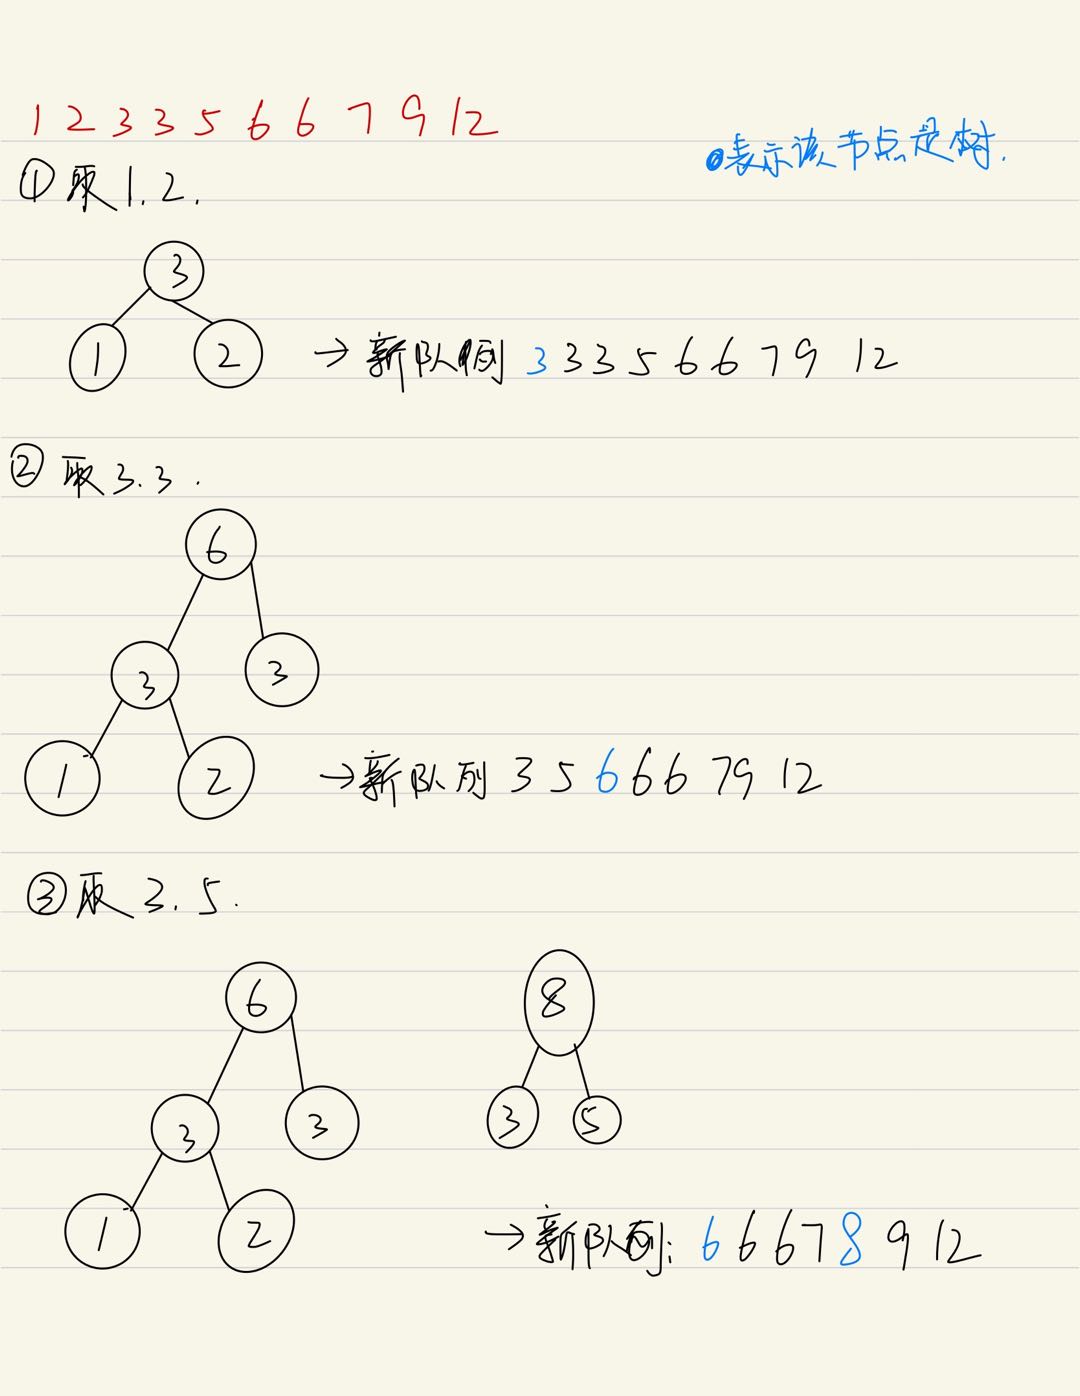 1 2 3 3 5 6 6 7 9 12
表示该节点是树.
① 取 1. 2.
3
1 2 → 新队列 3 3 3 5 6 6 7 9 12
② 取 3. 3.
6
3 3
1 2 → 新队列 3 5 6 6 6 7 9 12
③ 取 3. 5.
6 8
3 3 3 5
1 2 → 新队列: 6 6 6 7 8 9 12